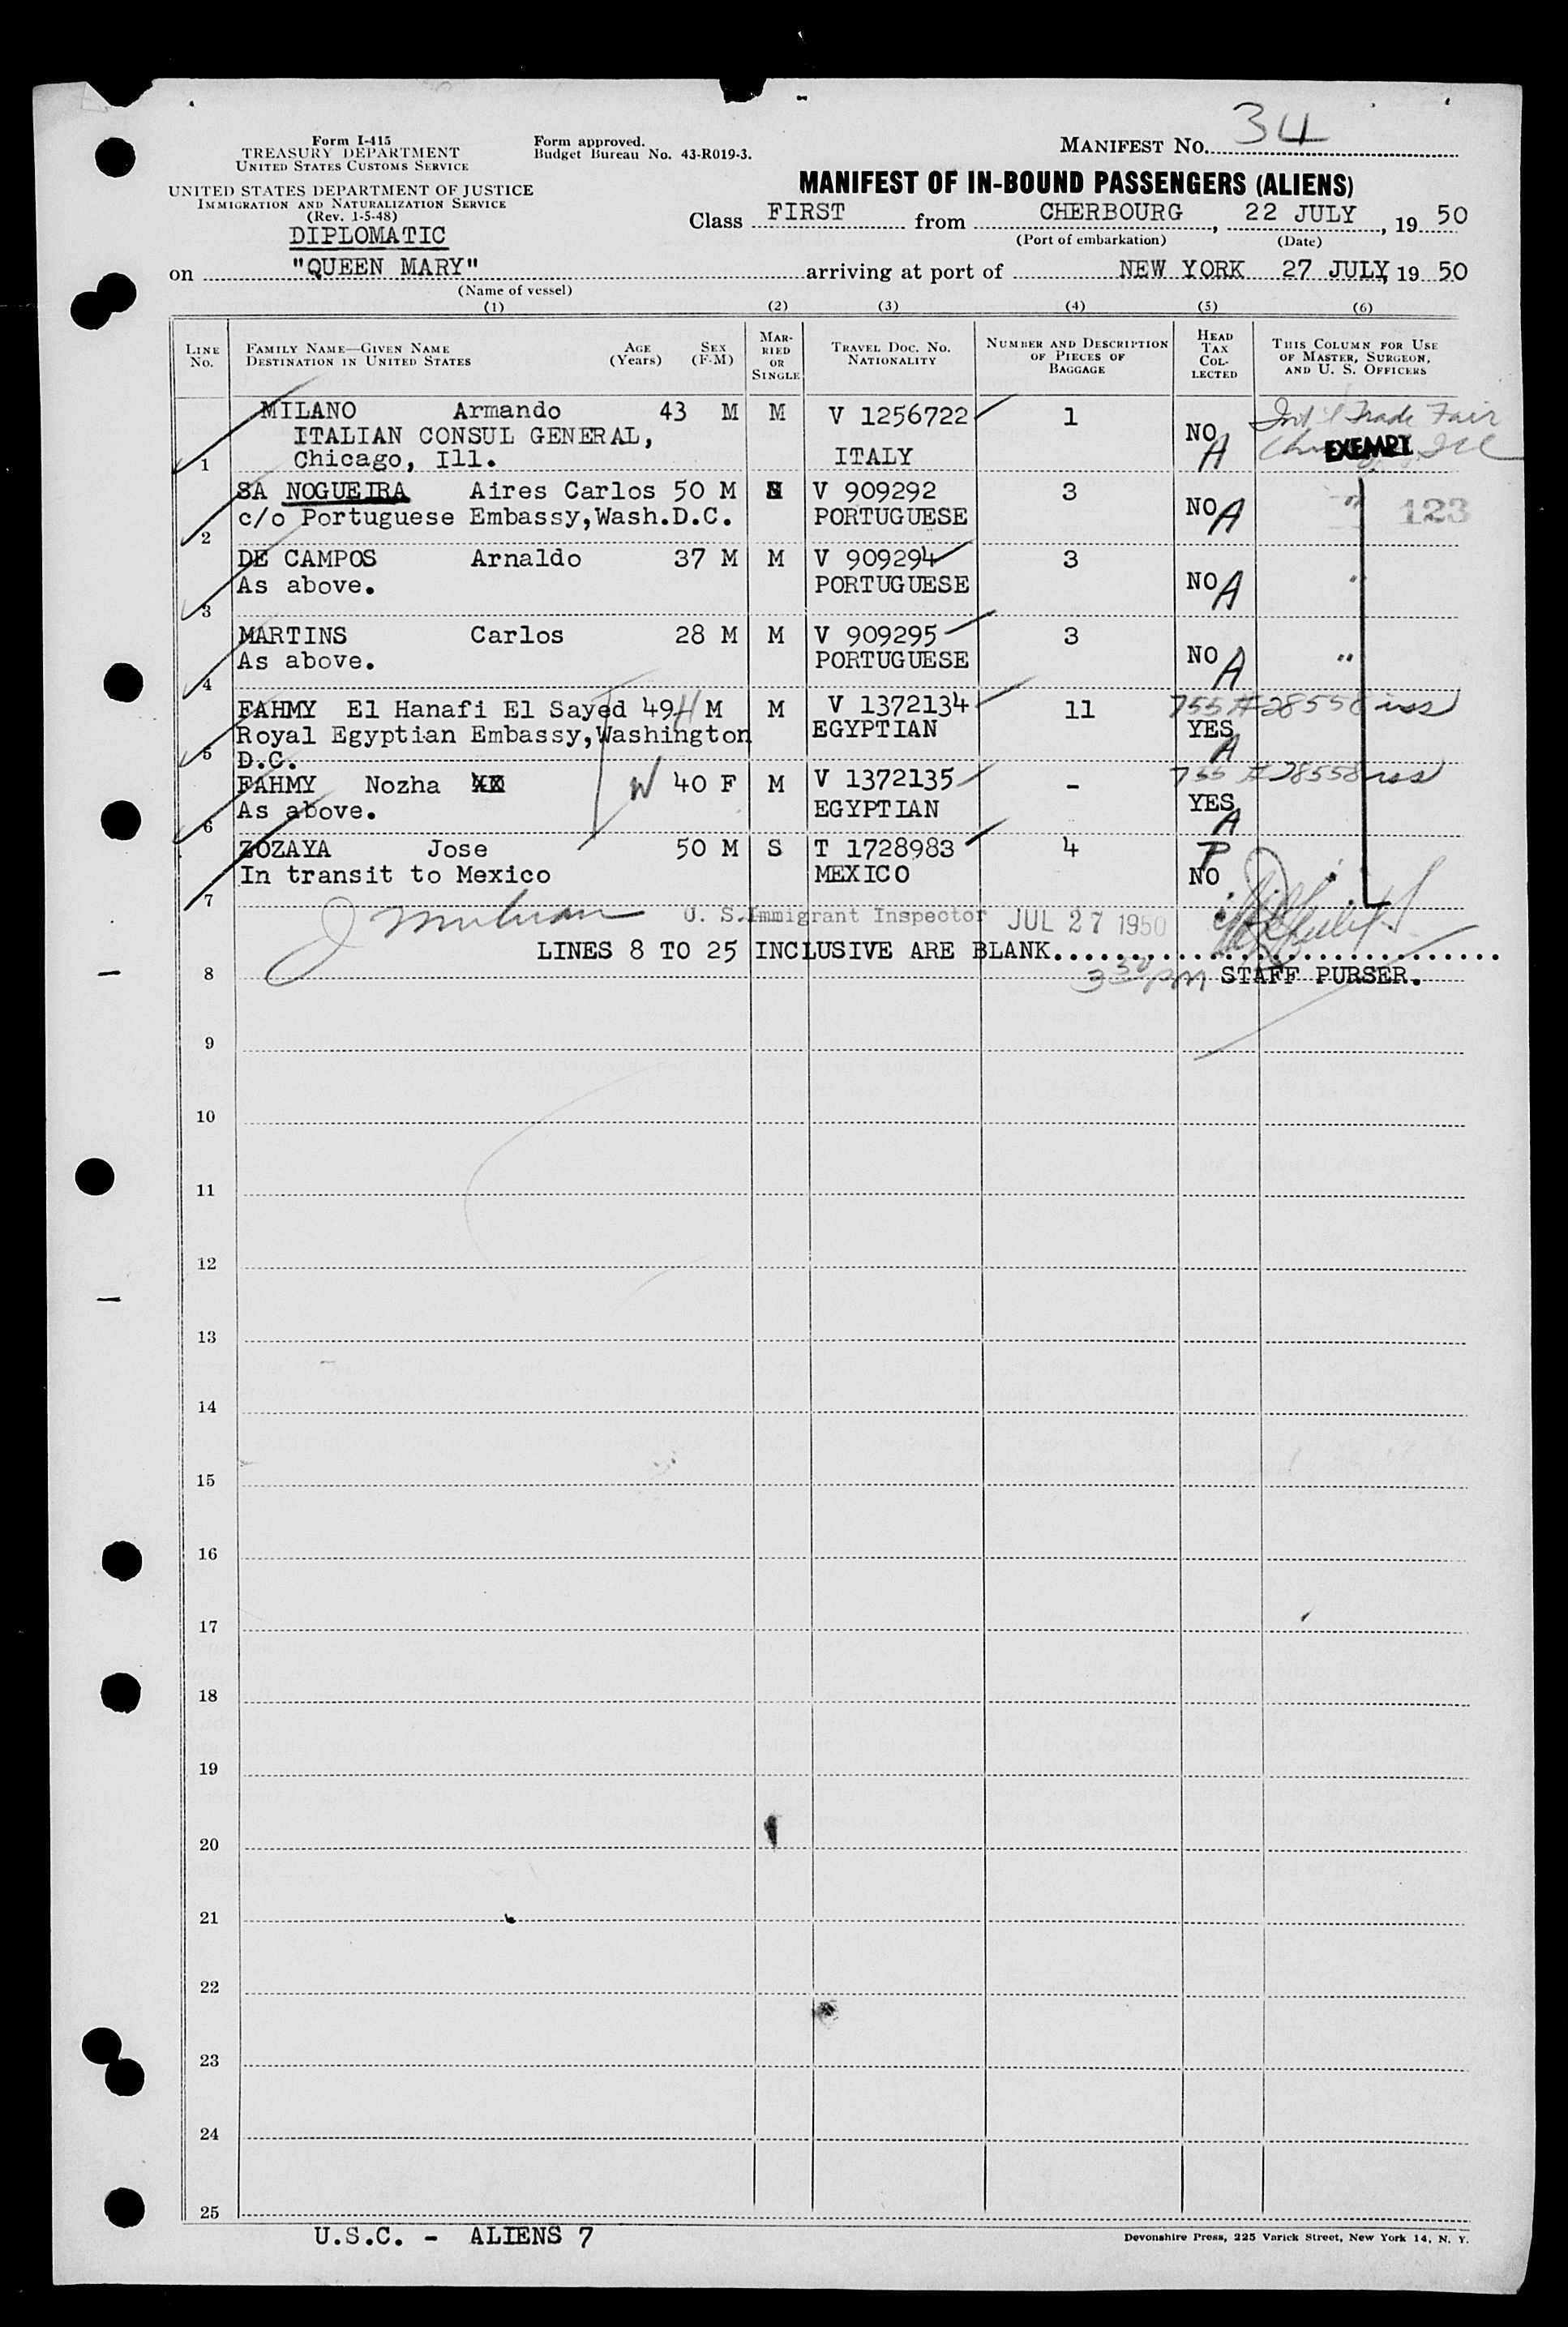 Form I-415
TREASURY DEPARTMENT
UNITED STATES CUSTOMS SERVICE
Form approved.
Budget Bureau No. 43-R019-3.
MANIFEST NO. 34
UNITED STATES DEPARTMENT OF JUSTICE
IMMIGRATION AND NATURALIZATION SERVICE
(Rev. 1-5-48)
MANIFEST OF IN-BOUND PASSENGERS (ALIENS)
DIPLOMATIC
Class FIRST from CHERBOURG, 22 JULY, 19 50
(Port of embarkation) (Date)
on "QUEEN MARY" arriving at port of NEW YORK 27 JULY, 19 50
(Name of vessel)
(1) (2) (3) (4) (5) (6)
LINE NO.
FAMILY NAME—GIVEN NAME
DESTINATION IN UNITED STATES
AGE (Years)
SEX (F-M)
MARRIED OR SINGLE
TRAVEL DOC. NO. NATIONALITY
NUMBER AND DESCRIPTION OF PIECES OF BAGGAGE
HEAD TAX COLLECTED
THIS COLUMN FOR USE OF MASTER, SURGEON, AND U. S. OFFICERS
MILANO Armando 43 M M V 1256722 1 Int'l Trade Fair
ITALIAN CONSUL GENERAL, NO
1 Chicago, Ill. ITALY A EXEMPT Ill
SA NOGUEIRA Aires Carlos 50 M V 909292 3 NO A " 123
2 c/o Portuguese Embassy,Wash.D.C. PORTUGUESE
DE CAMPOS Arnaldo 37 M M V 909294 3 NO A "
3 As above. PORTUGUESE
MARTINS Carlos 28 M M V 909295 3 NO A "
4 As above. PORTUGUESE
FAHMY El Hanafi El Sayed 49 H M M V 1372134 11 755 # 28558 iss
Royal Egyptian Embassy,Washington EGYPTIAN YES
5 D.C. A
FAHMY Nozha W 40 F M V 1372135 - 755 # 28558 iss
6 As above. EGYPTIAN YES A
ZOZAYA Jose 50 M S T 1728983 4 P
7 In transit to Mexico MEXICO NO
U. S. Immigrant Inspector JUL 27 1950
LINES 8 TO 25 INCLUSIVE ARE BLANK..............................
8 3 30 pm STAFF PURSER.
9
10
11
12
13
14
15
16
17
18
19
20
21
22
23
24
25
U.S.C. - ALIENS 7
Devonshire Press, 225 Varick Street, New York 14, N. Y.